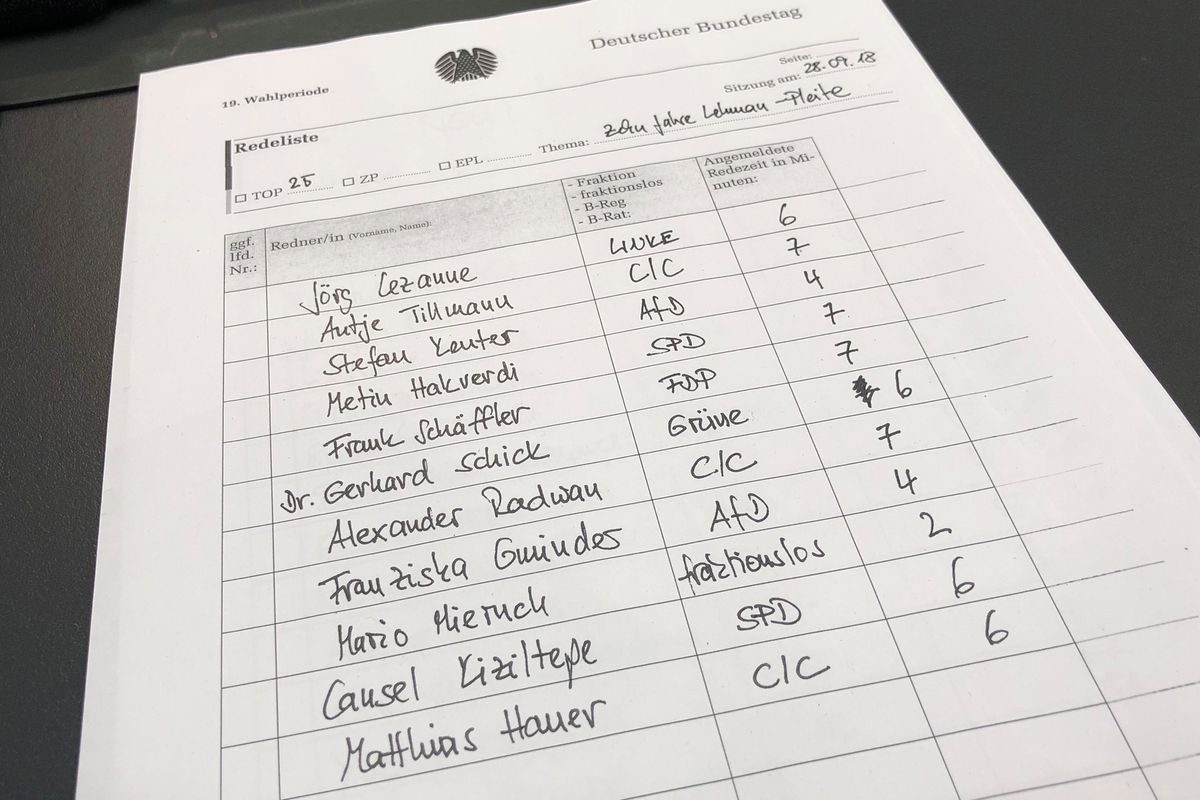 Deutscher Bundestag
19. Wahlperiode
Seite:
Sitzung am: 28.09.18
Redeliste
☐ TOP 25 ☐ ZP ☐ EPL Thema: Zehn Jahre Lehman-Pleite
ggf. lfd. Nr.:
Redner/in (Vorname, Name):
- Fraktion
- fraktionslos
- B-Reg
- B-Rat:
Angemeldete
Redezeit in Mi-
nuten:
Jörg Cezanne LINKE 6
Antje Tillmann C/C 7
Stefan Keuter AfD 4
Metin Hakverdi SPD 7
Frank Schäffler FDP 7
Dr. Gerhard Schick Grüne 6
Alexander Radwan C/C 7
Franziska Gmindes AfD 4
Mario Mieruch fraktionslos 2
Cansel Kiziltepe SPD 6
Matthias Hauer C/C 6